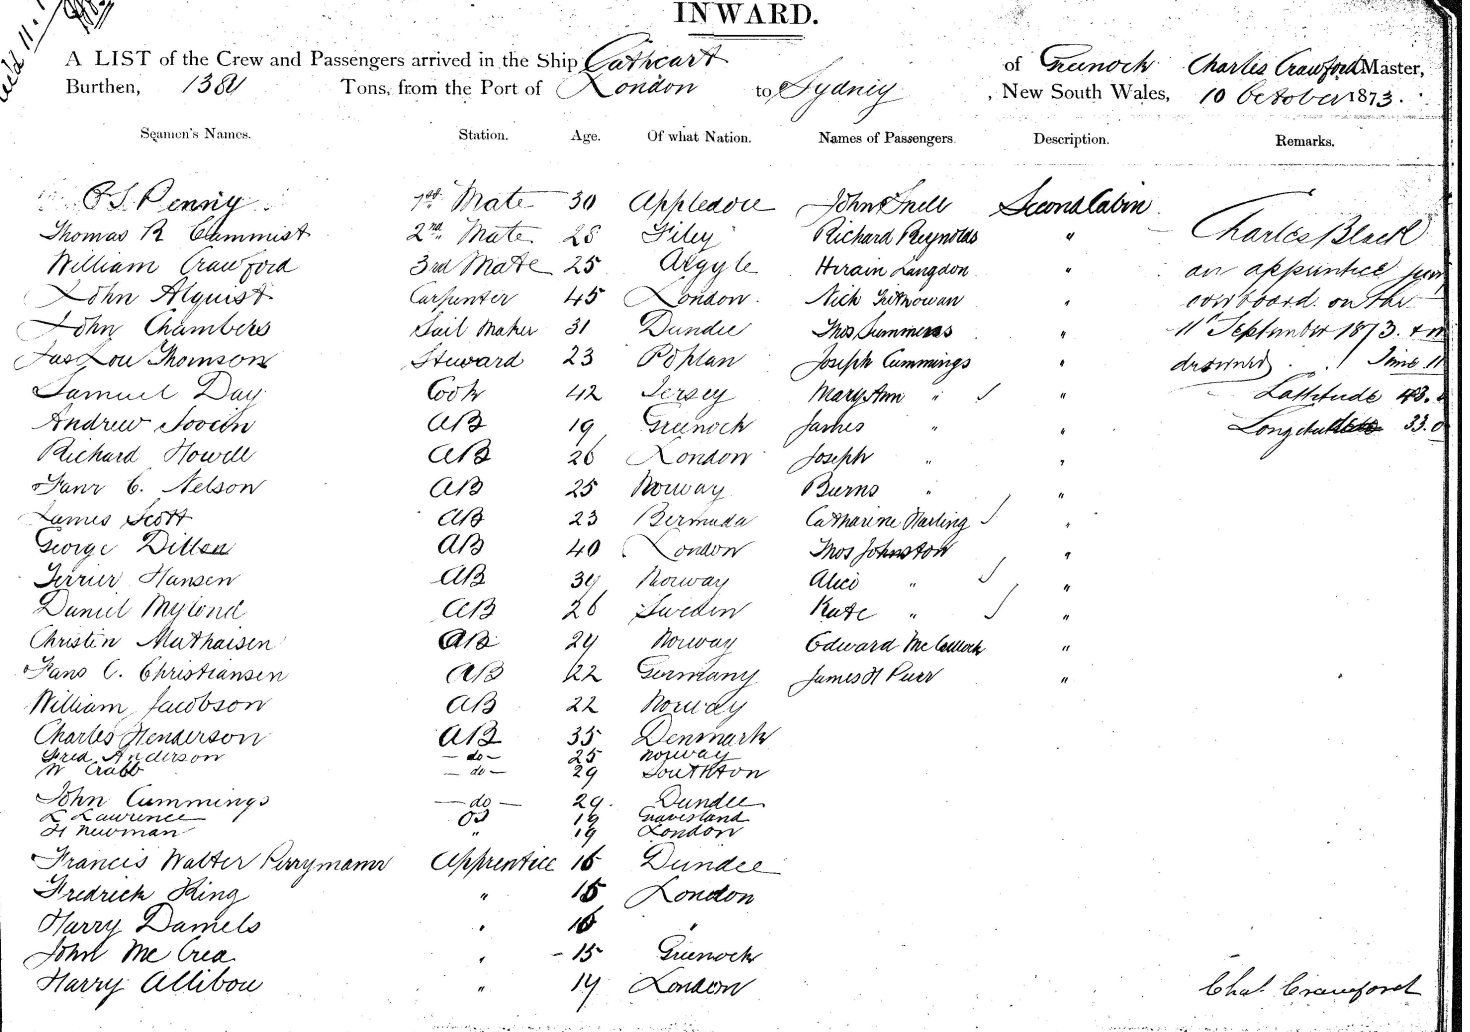 INWARD.
A LIST of the Crew and Passengers arrived in the Ship Cathcart of Greenock Charles Crawford Master,
Burthen, 1381 Tons, from the Port of London to Sydney, New South Wales, 10 October 1873.
Seamen's Names. Station. Age. Of what Nation. Names of Passengers. Description. Remarks.
Penny 1st Mate 30 Appledore John Snell Second Cabin
Thomas R Cammist 2nd Mate 28 Filey Richard Reynolds " Charles Black
William Crawford 3rd Mate 25 Argyle Hirain Langdon " an apprentice
John Alquist Carpenter 45 London Nick " overboard on the
John Chambers Sail Maker 31 Dundee Thos Summers " 11th September 1873.
Jas Lou Thomson Steward 23 Poplan Joseph Cummings " drowned Time 11
Samuel Day Cook 42 Jersey Mary Ann " " Lattitude 43.
Andrew AB 19 Greenock James " " 33.0
Richard Howell AB 26 London Joseph " "
C. Nelson AB 25 Norway Burns " "
James Scott AB 23 Bermuda Catharine Harling "
George Dillon AB 40 London Thos Johnston "
Hansen AB 39 Norway Alice " "
Daniel Mylond AB 26 Sweden Kate " "
Christin Mathaisen AB 29 Norway Edward McCullock "
Hans C. Christiansen AB 22 Germany James H Purr "
William Jacobson AB 22 Norway
Charles Henderson AB 35 Denmark
Fred Anderson - do - 25 Norway
W Crabb - do - 29 Southton
John Cummings - do - 29. Dundee
L Lawrence OS 19 Gravesland
H Newman " 19 London
Francis Walter Perrymann Apprentice 16 Dundee
Fredrick King " 15 London
Harry Daniels " 16 "
John McCrea " 15 Greenock
Harry Allibon " 14 London
Chas. Crawford